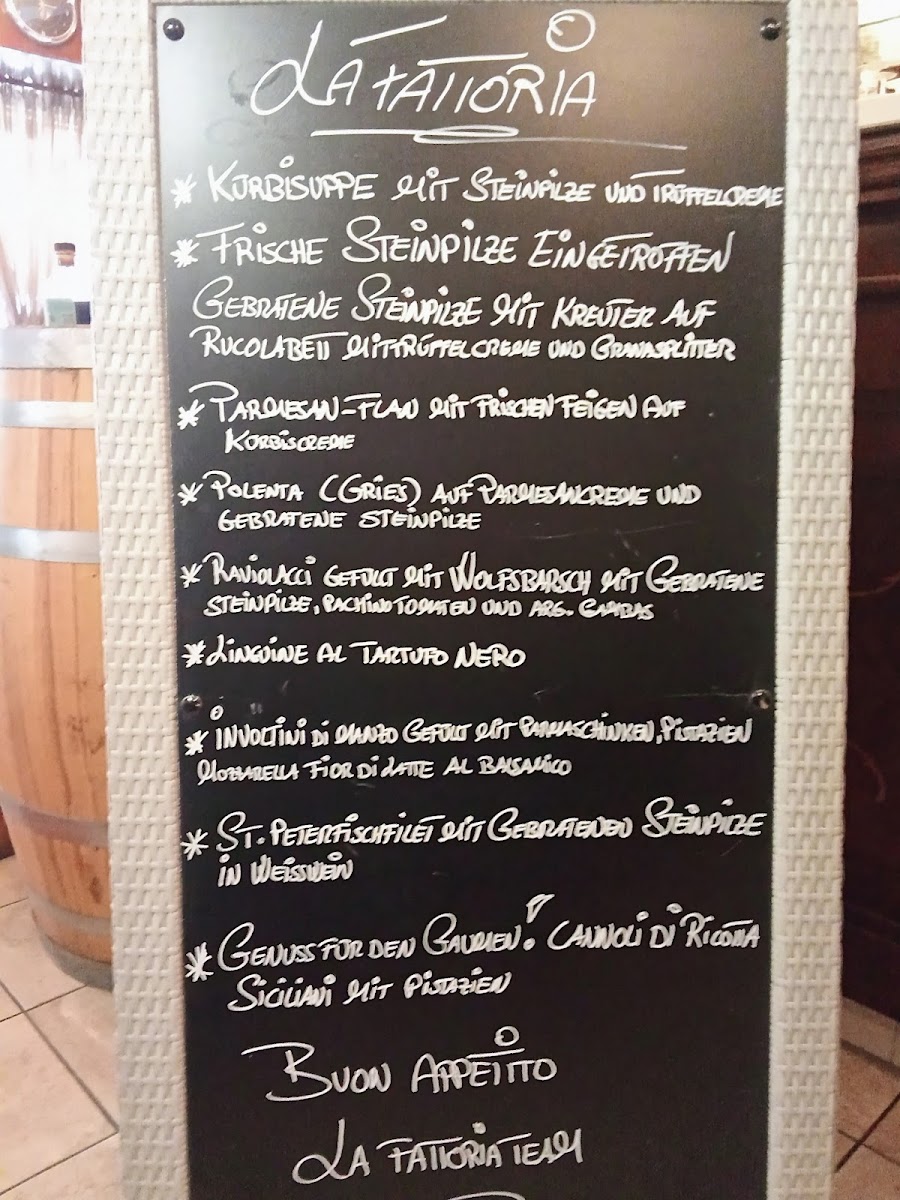 LA FATTORIA
* KÜRBISUPPE MIT STEINPILZE UND TRÜFFELCREME
* FRISCHE STEINPILZE EINGETROFFEN
GEBRATENE STEINPILZE MIT KREUTER AUF
RUCOLABETT MIT TRÜFFELCREME UND GRANASPLITTER
* PARMESAN-FLAN MIT FRISCHEN FEIGEN AUF
KÜRBISCREME
* POLENTA (GRIES) AUF PARMESANCREME UND
GEBRATENE STEINPILZE
* RAVIOLACCI GEFÜLLT MIT WOLFSBARSCH MIT GEBRATENE
STEINPILZE, PACHINO TOMATEN UND ARG. GAMBAS
* LINGUINE AL TARTUFO NERO
* INVOLTINI DI MANZO GEFÜLLT MIT PARMASCHINKEN, PISTAZIEN
MOZZARELLA FIOR DI LATTE AL BALSAMICO
* ST. PETERFISCHFILET MIT GEBRATENEN STEINPILZE
IN WEISSWEIN
* GENUSS FÜR DEN GAUMEN! CANNOLI DI RICOTTA
SICILIANI MIT PISTAZIEN
BUON APPETITO
LA FATTORIA TEAM